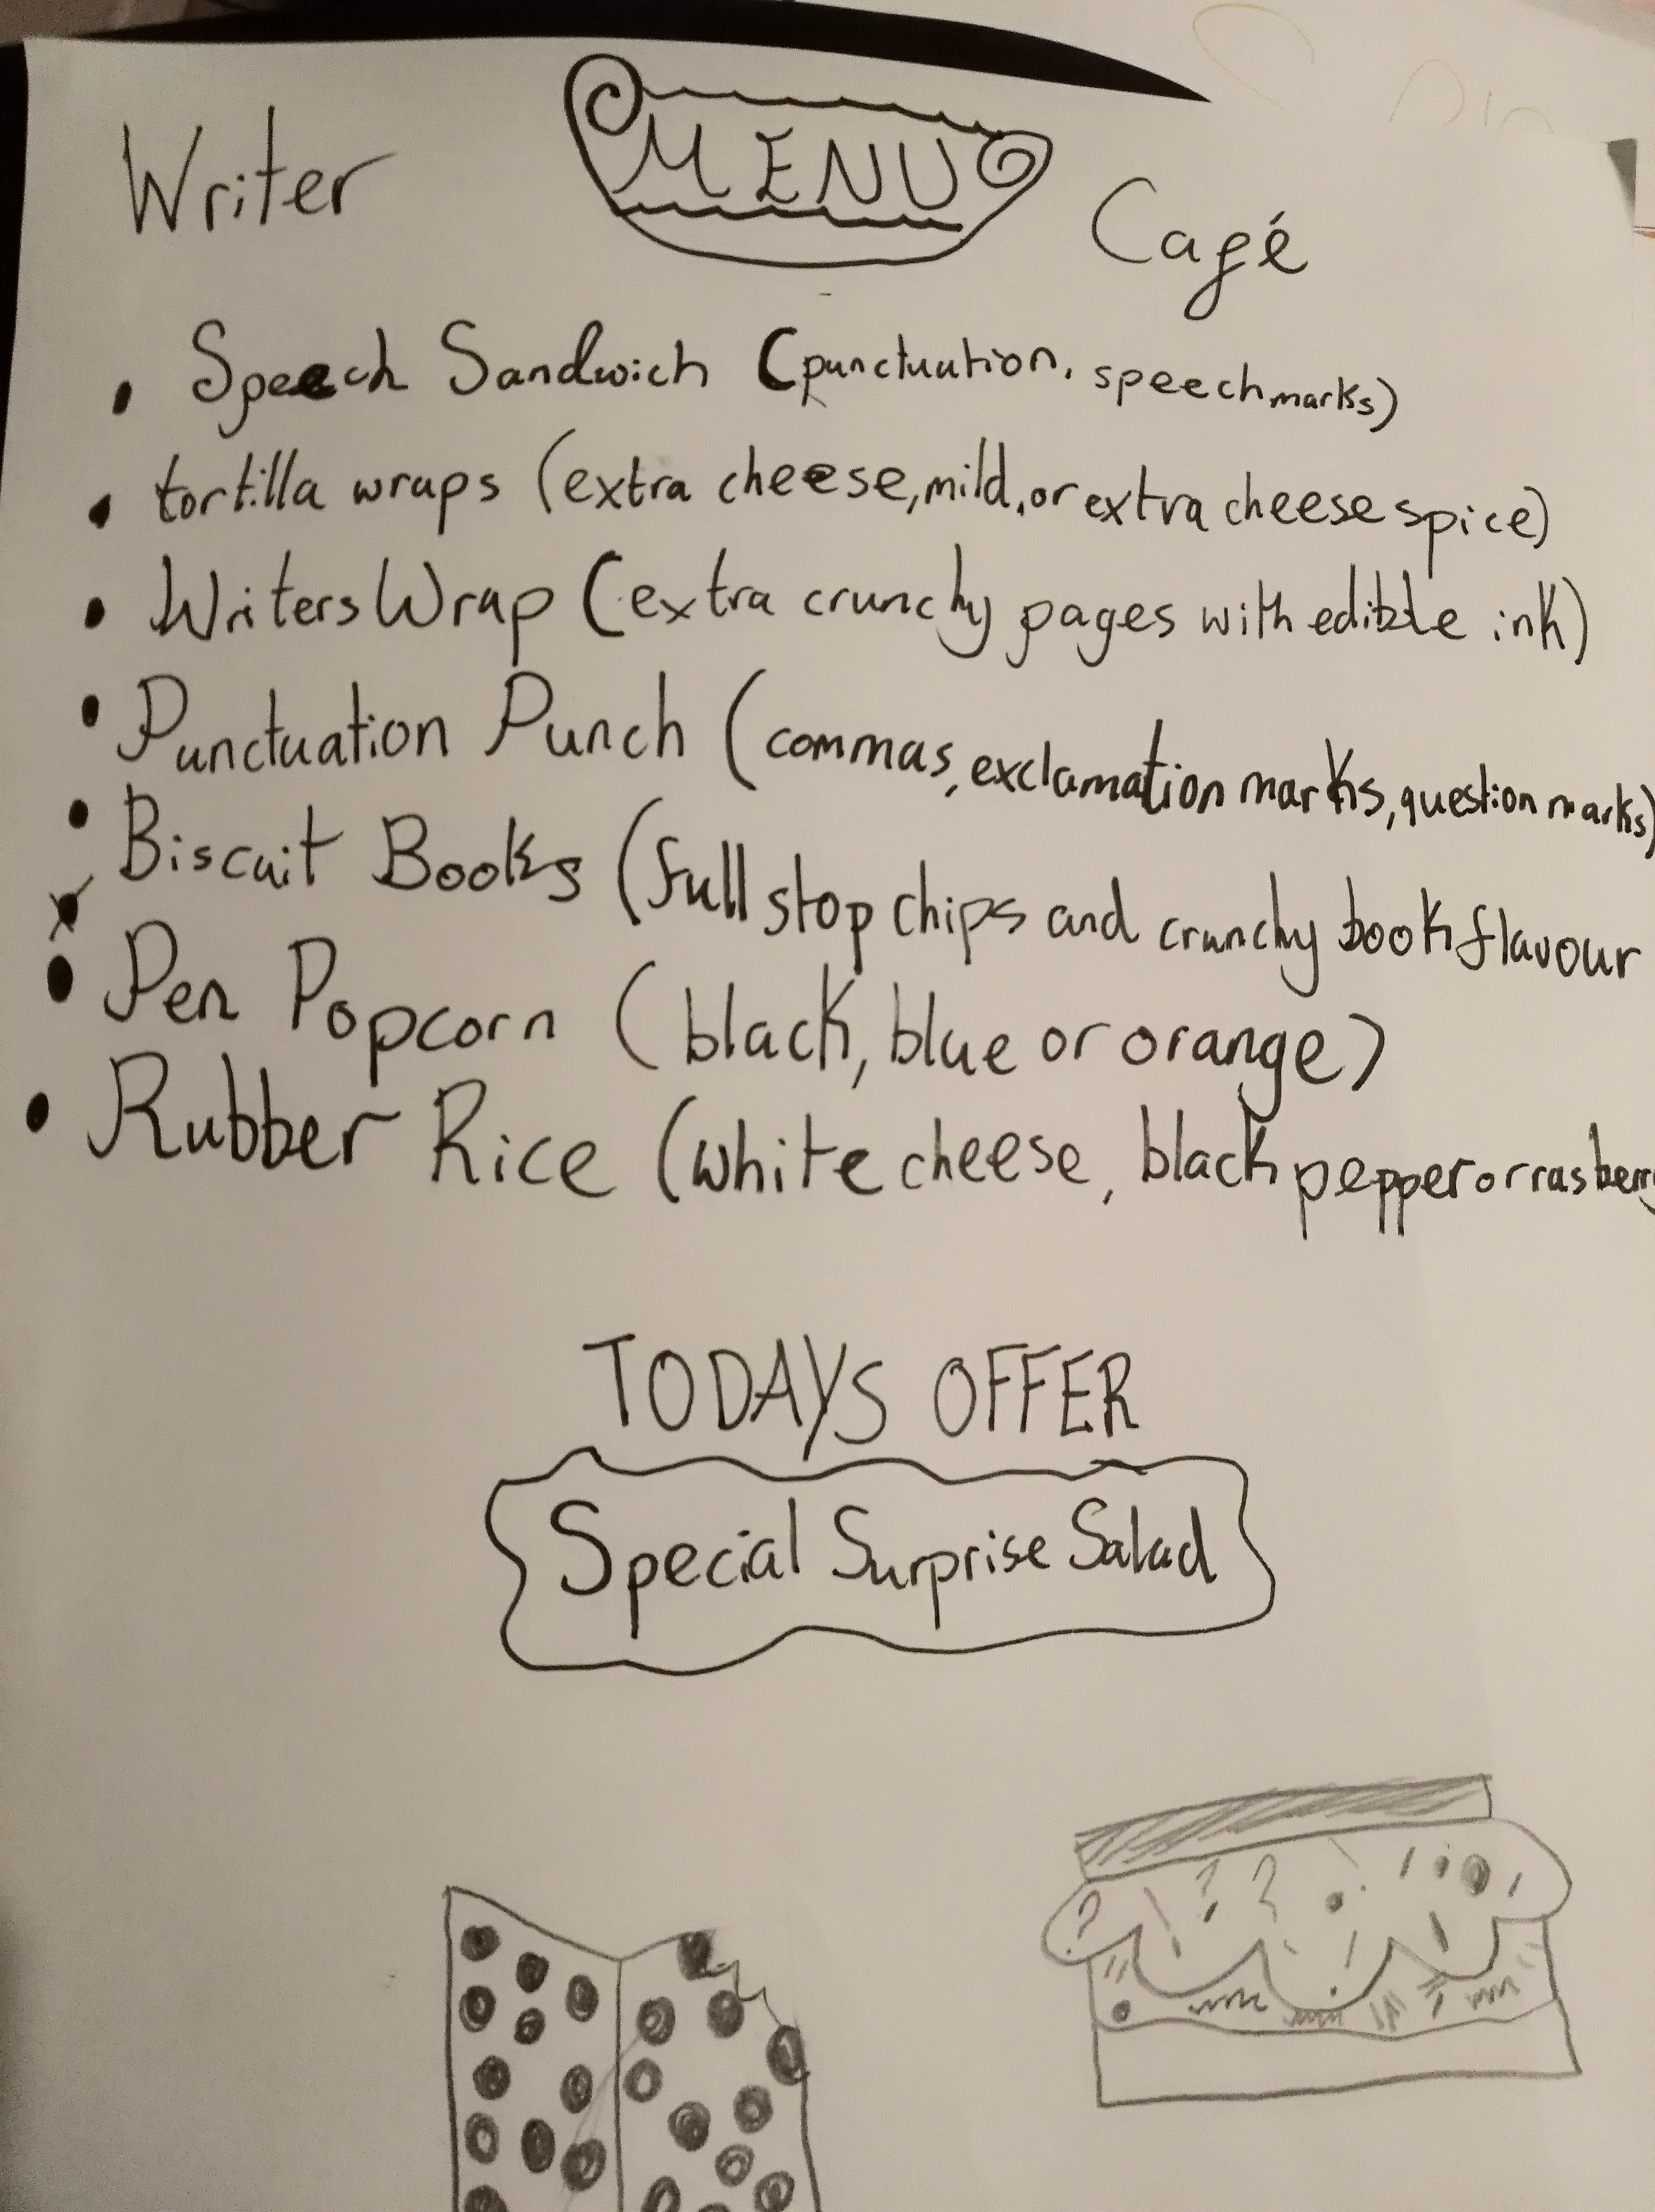 Writer MENU Café
• Speech Sandwich (punctuation, speech marks)
• tortilla wraps (extra cheese, mild, or extra cheese spice)
• Writers Wrap (extra crunchy pages with edible ink)
• Punctuation Punch (commas, exclamation marks, question marks)
• Biscuit Books (full stop chips and crunchy book flavour
• Pen Popcorn (black, blue or orange)
• Rubber Rice (white cheese, black pepper or rasberry
TODAYS OFFER
Special Surprise Salad